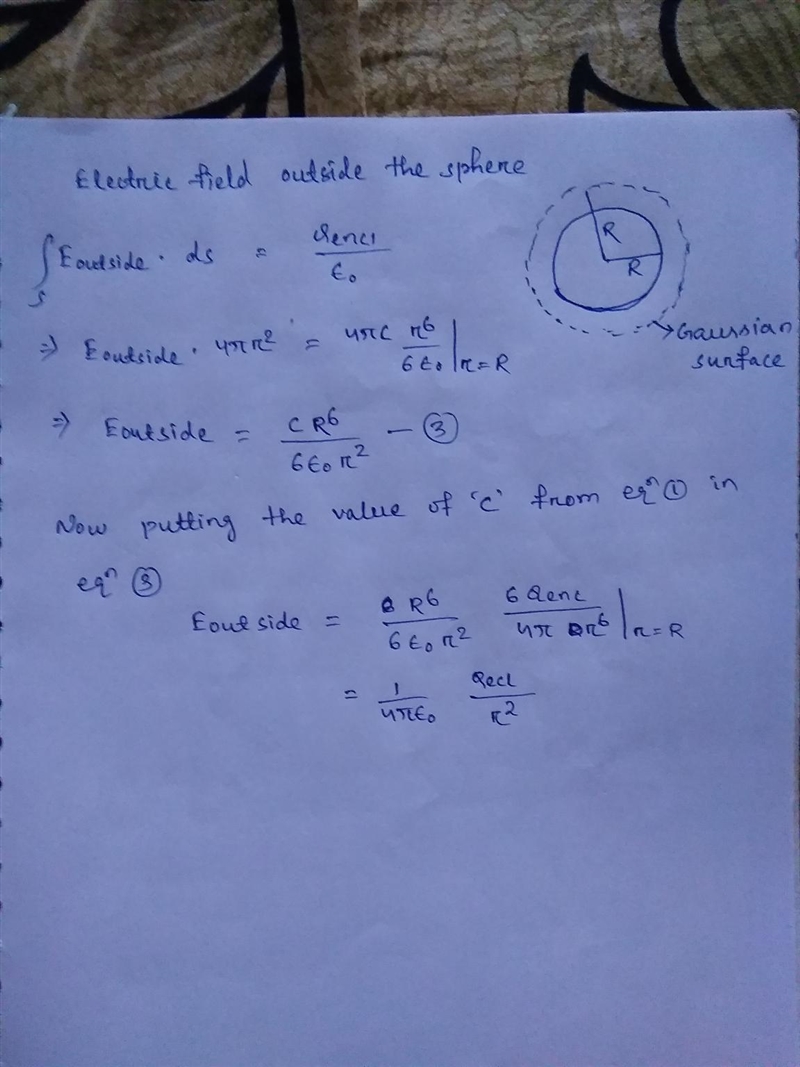 Electric field outside the sphere
∫s Eoutside · ds = Qencl / ε0
R
R
⇒ Eoutside · 4πr² = 4πC r⁶ / 6ε0 |r=R
→ Gaussian
surface
⇒ Eoutside = C R⁶ / 6ε0 r² — ③
Now putting the value of 'C' from eqⁿ ① in
eqⁿ ③
Eoutside = R⁶ / 6ε0 r² 6 Qenc / 4π r⁶ |r=R
= 1 / 4πε0 Qecl / r²